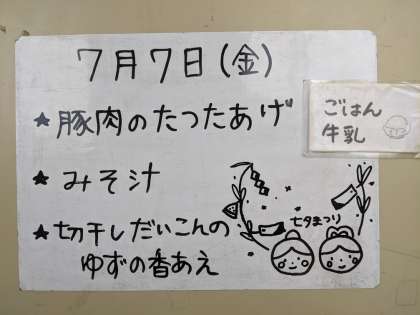 7月7日(金)
★豚肉のたつたあげ
ごはん
牛乳
★みそ汁
★切干しだいこんの
ゆずの香あえ
七夕まつり